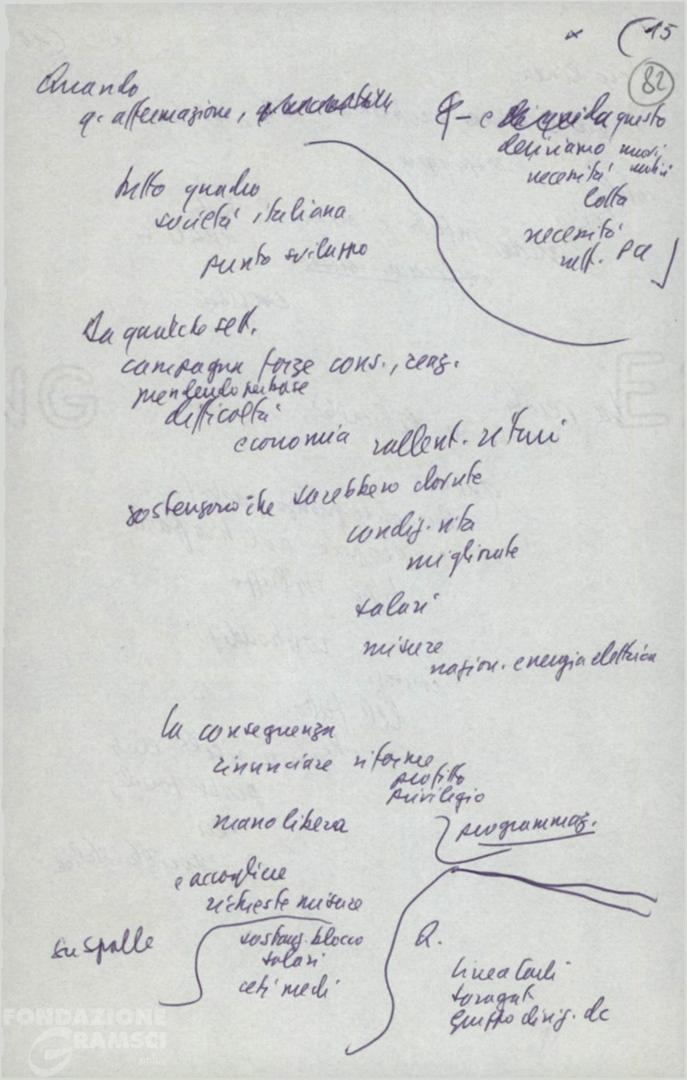 x (15
82
Quando
q. affermazione,
q - e questo
deriviamo nuovi
necessità
lotta
necessità
raff. PCI
tutto quadro
società italiana
punto sviluppo
Da qualche sett.
campagna forze cons., reaz.
prendendo per base
difficoltà
economia rallent. ritmi
sostengono che sarebbero dovute
condiz. vita
migliorate
salari
misure
nazion. energia elettrica
In conseguenza
rinunciare riforme
profitto
privilegio
mano libera
programmaz.
e accogliere
richieste misure
su spalle
sostanz. blocco
salari
ceti medi
Q.
linea Carli
Saragat
gruppo dirig. dc
FONDAZIONE
GRAMSCI